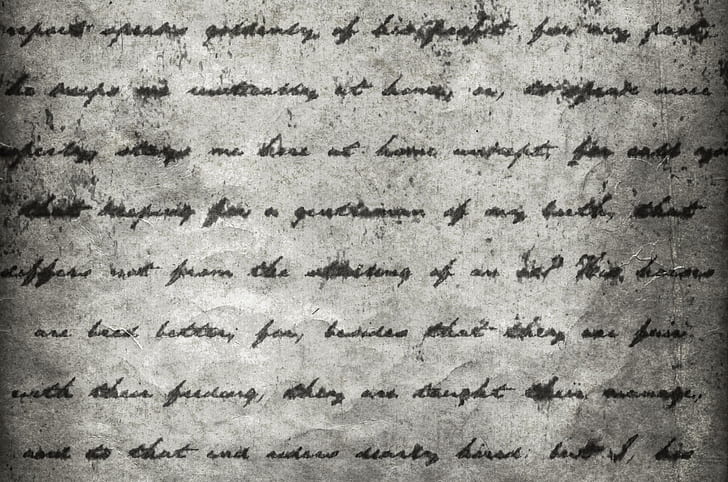 report speaks goldenly of his profit: for my part,
he keeps me rustically at home, or, to speak more
operly, stays me here at home unkept; for call yo
that keeping for a gentleman of my birth, that
differs not from the stalling of an ox? His horses
are bred better; for, besides that they are fair
with their feeding, they are taught their manage,
and to that end riders dearly hired: but I, his